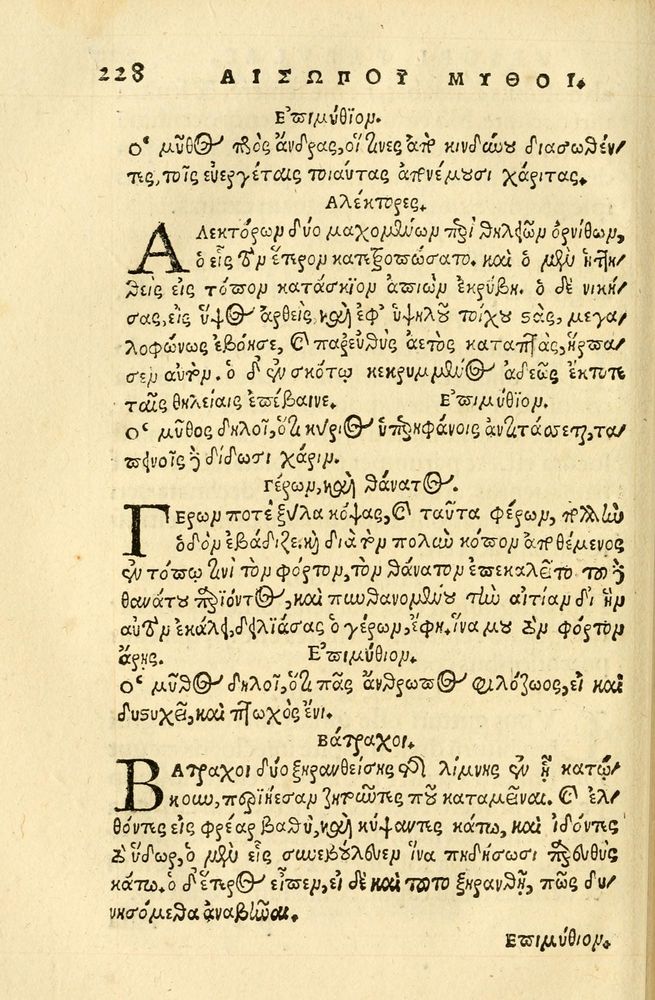 228 ΑΙΣΩΠΟΥ ΜΥΘΟΙ.
Ἐπιμύθιον.
Ὁ μῦθος πρὸς ἄνδρας, οἵτινες ἀπὸ κινδύνου διασωθέν-
τες, τοῖς εὐεργέταις τοιαύτας ἀπονέμουσι χάριτας.
Ἀλέκτορες.
ΑΛεκτόρων δύο μαχομένων περὶ θηλειῶν ὀρνίθων,
ὁ εἷς τὸν ἕτερον κατετροπώσατο. καὶ ὁ μὲν ἡττη-
θεὶς εἰς τόπον κατάσκιον ἀπιὼν ἐκρύβη. ὁ δὲ νικη-
σας, εἰς ὕψος ἀρθεὶς, καὶ ἐφ' ὑψηλοῦ τοίχου στὰς, μεγα-
λοφώνως ἐβόησε, καὶ παρευθὺς ἀετὸς καταπτὰς, ἥρπα-
σεν αὐτὸν. ὁ δ' ἐν σκότῳ κεκρυμμένος ἀδεῶς ἔκτοτε
ταῖς θηλείαις ἐπέβαινε. Ἐπιμύθιον.
Ὁ μῦθος δηλοῖ, ὅτι κύριος ὑπερηφάνοις ἀντιτάσσεται, τα-
πεινοῖς δὲ δίδωσι χάριν.
Γέρων, καὶ θάνατος.
ΓΕρων ποτὲ ξύλα κόψας, καὶ ταῦτα φέρων, πολλὴν
ὁδὸν ἐβάδιζε. καὶ διὰ τὸν πολὺν κόπον ἀποθέμενος
ἐν τόπῳ τινὶ τὸν φόρτον, τὸν θάνατον ἐπεκαλεῖτο. τοῦ δὲ
θανάτου παρόντος, καὶ πυνθανομένου τὴν αἰτίαν δι' ἣν
αὐτὸν ἐκάλει, δειλιάσας ὁ γέρων, ἔφη. ἵνα μου τὸν φόρτον
ἄρῃς. Ἐπιμύθιον.
Ὁ μῦθος δηλοῖ, ὅτι πᾶς ἄνθρωπος φιλόζωος, εἰ καὶ
δυστυχεῖ, καὶ πτωχὸς ἐνι.
Βάτραχοι.
ΒΑτραχοι δύο ξηρανθείσης τῆς λίμνης ἐν ᾗ κατῴ-
κουν, περιῄεσαν ζητοῦντες ποῦ καταμεῖναι. καὶ ἐλ-
θόντες εἰς φρέαρ βαθὺ, καὶ κύψαντες κάτω, καὶ ἰδόντες
τὸ ὕδωρ, ὁ μὲν εἷς συνεβούλευεν ἵνα πηδήσωσι παρευθὺς
κάτω. ὁ δ' ἕτερος εἶπεν, εἰ δὲ καὶ τοῦτο ξηρανθῇ, πῶς δυ-
νησόμεθα ἀναβῆναι.
Ἐπιμύθιον.